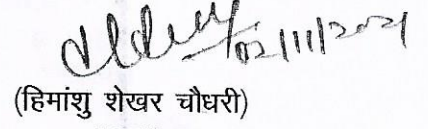 02/11/2021
(हिमांशु शेखर चौधरी)